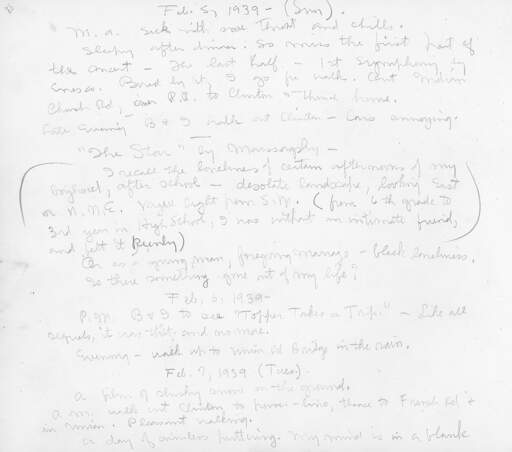 Feb. 5, 1939 - (Sun).
M. a. sick with sore throat and chills.
Sleepy after dinner. So miss the first part of
the concert - The last half - 1st Symphony by
Enesco. Bored by it, I go for walk. Out Indian
Church Rd, over P.R. to Clinton & thence home.
Late Evening B & I walk out Clinton - Cars annoying.
"The Star" by Moussorgsky -
I recall the loneliness of certain afternoons of my
boyhood, after school - desolate landscape, looking East
or N.N.E. light from S.W. (from 6th grade to
3rd year in High School, I was without an intimate friend,
and felt it keenly)
Or as a young man, foregoing marriage - black loneliness.
Is there something gone out of my life?
Feb. 6, 1939-
P.M. B & I to see "Topper Takes a Trip." - Like all
sequels, it was that, and no more.
Evening - walk up to Union Rd Bridge in the rain.
Feb. 7, 1939 (Tues).
a film of slushy snow on the ground.
a.m. walk out Clinton to thence to French Rd &
Union. Pleasant walking.
a day of aimless puttering. My mind is in a blank